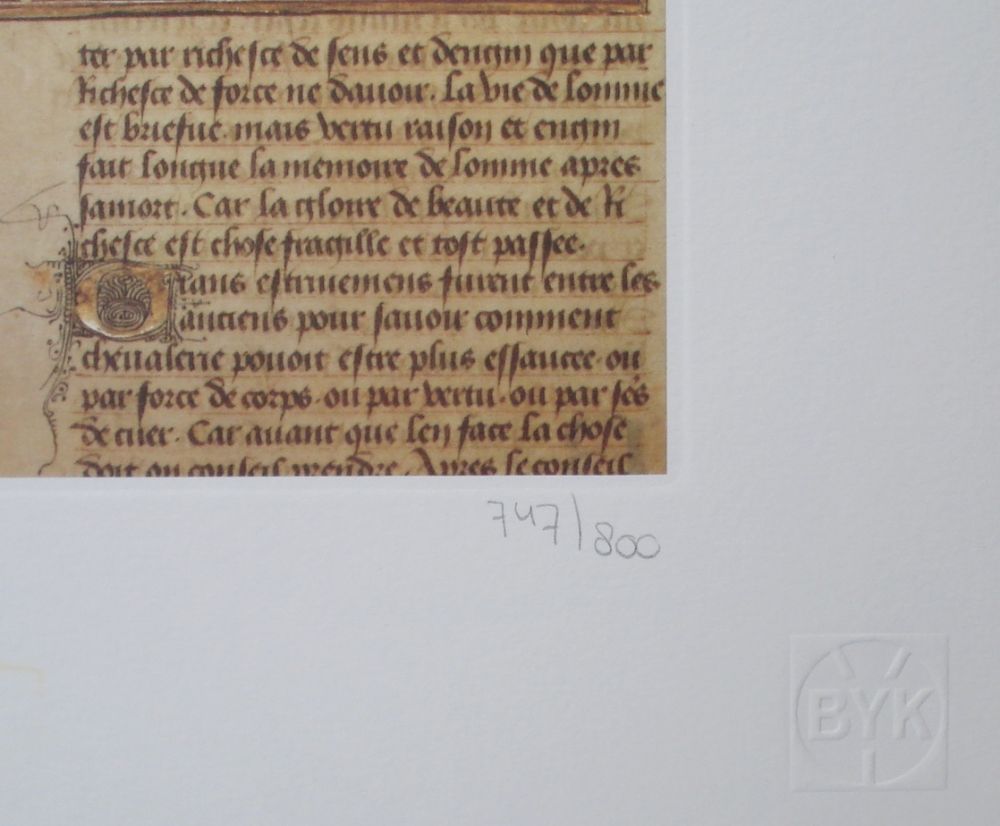 ter par richesce de sens et dengin que par
Richesce de force ne dauoir. La vie de lomme
est briefue. mais vertu raison et engin
fait longue la memoire de lomme apres
samort. Car la gloire de beaute et de Ri
chesce est chose fragille et tost passee.
Grans estriuemens furent entre les
anciens pour sauoir comment
cheualerie pouoit estre plus essaucee. ou
par force de corps. ou par vertu. ou par sēs
de cuer. Car auant que len face la chose
doit on conseil prendre. Apres le conseil
747/800
BYK